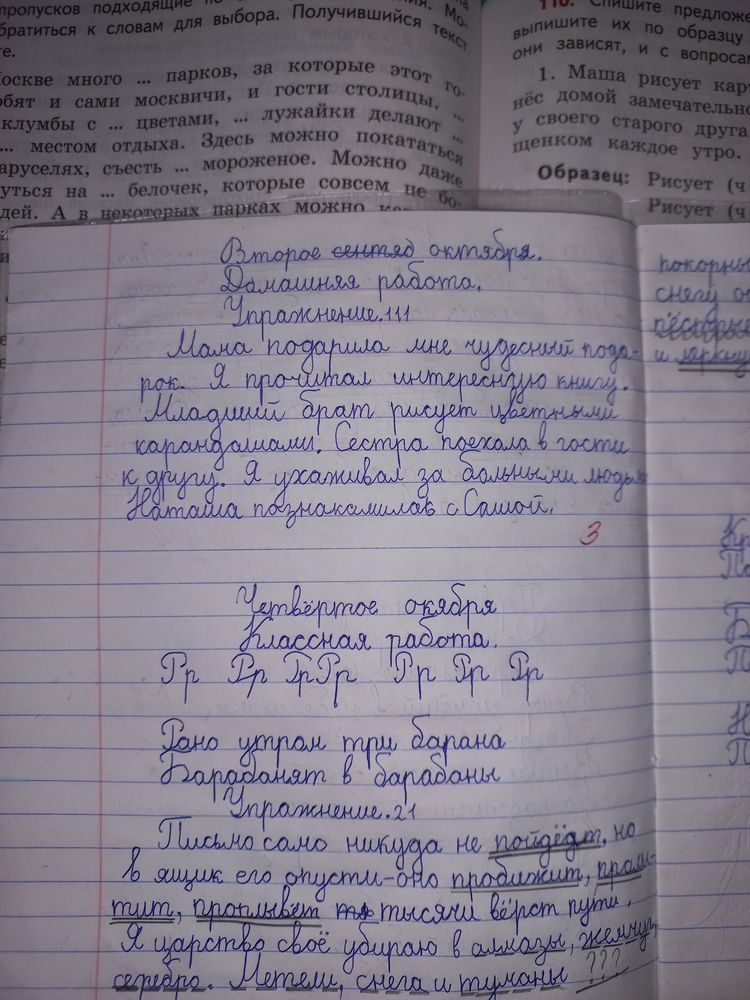 пропусков подходящие по
братиться к словам для выбора. Получившийся текст
те.
оскве много ... парков, за которые этот го-
юбят и сами москвичи, и гости столицы. ...
клумбы с ... цветами, ... лужайки делают ...
... местом отдыха. Здесь можно покататься
аруселях, съесть ... мороженое. Можно даже
нуться на ... белочек, которые совсем не бо-
дей. А в некоторых парках можно
110. Спишите предложе
выпишите их по образцу
они зависят, и с вопросам
1. Маша рисует кар
нёс домой замечательно
у своего старого друга
щенком каждое утро.
Образец: Рисует (ч
Рисует (ч
Второе сентяд октября.
Домашняя работа.
Упражнение.111
Мама подарила мне чудесный пода-
рок. Я прочитал интересную книгу.
Младший брат рисует цветными
карандашами. Сестра поехала в гости
к другу. Я ухаживал за больными людьми
Наташа познакамилась с Сашой.
3
Четвёртое окября
Классная работа.
Рр Рр Рр Рр Рр Рр Рр
Рано утром три барана
Барабанят в барабаны
Упражнение.21
Письмо само никуда не пойдёт, но
в ящик его опусти-оно пробижит, проли-
тит, проплывёт тысячи вёрст пути.
Я царство своё убираю в алмазы, жемчуг,
серебро. Метели, снега и туманы ???
покорны
снегу
и